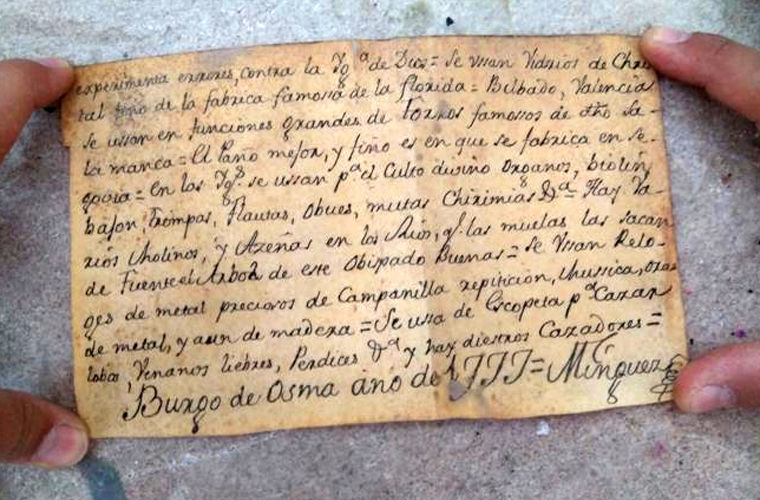 experimenta errores, contra la Yg.ª de Dios = Se vssan Vidrios de Chris
tal fino de la fabrica famossa de la florida = Bilbado, Valencia
se ussan en funciones grandes de Toros famossos de dho Sa-
la manca = El Paño mejor, y fino es en que se fabrica en Se-
govia = En las Yg.s se ussan p.ª el Culto divino Organos, biolin,
bajon, trompas, Flautas, Obues, muttas Chirimias &.ª = Hay Va-
rios Molinos, y Azeñas en los Rios, q.e las muelas las sacan
de Fuentelarbol de este Obispado Buenas = Se Vssan Relo-
ges de metal preciosos de Campanilla repiticion, Mussica,
de metal, y aun de madera = Se ussa de Escopeta p.ª Cazar
lobos, Venanos liebres, Perdices &.ª y hay diestros Cazadores =
Burgo de Osma año de 1777 = Minguez